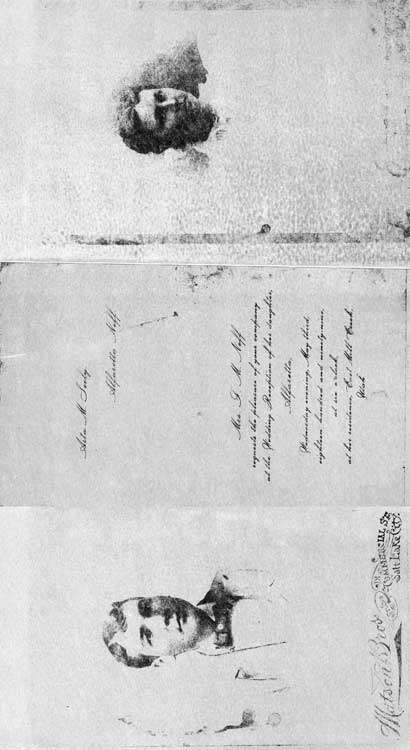 M. Seely
Alfaretta Neff
Mrs. M. Neff
requests the pleasure of your company
at the Wedding Reception of her daughter,
Alfaretta,
Wednesday evening, May third,
eighteen hundred and ninety-nine,
at six o'clock
at her residence, East Mill Creek,
Utah
Matson Bros
COMMERCIAL ST.
Salt Lake City.